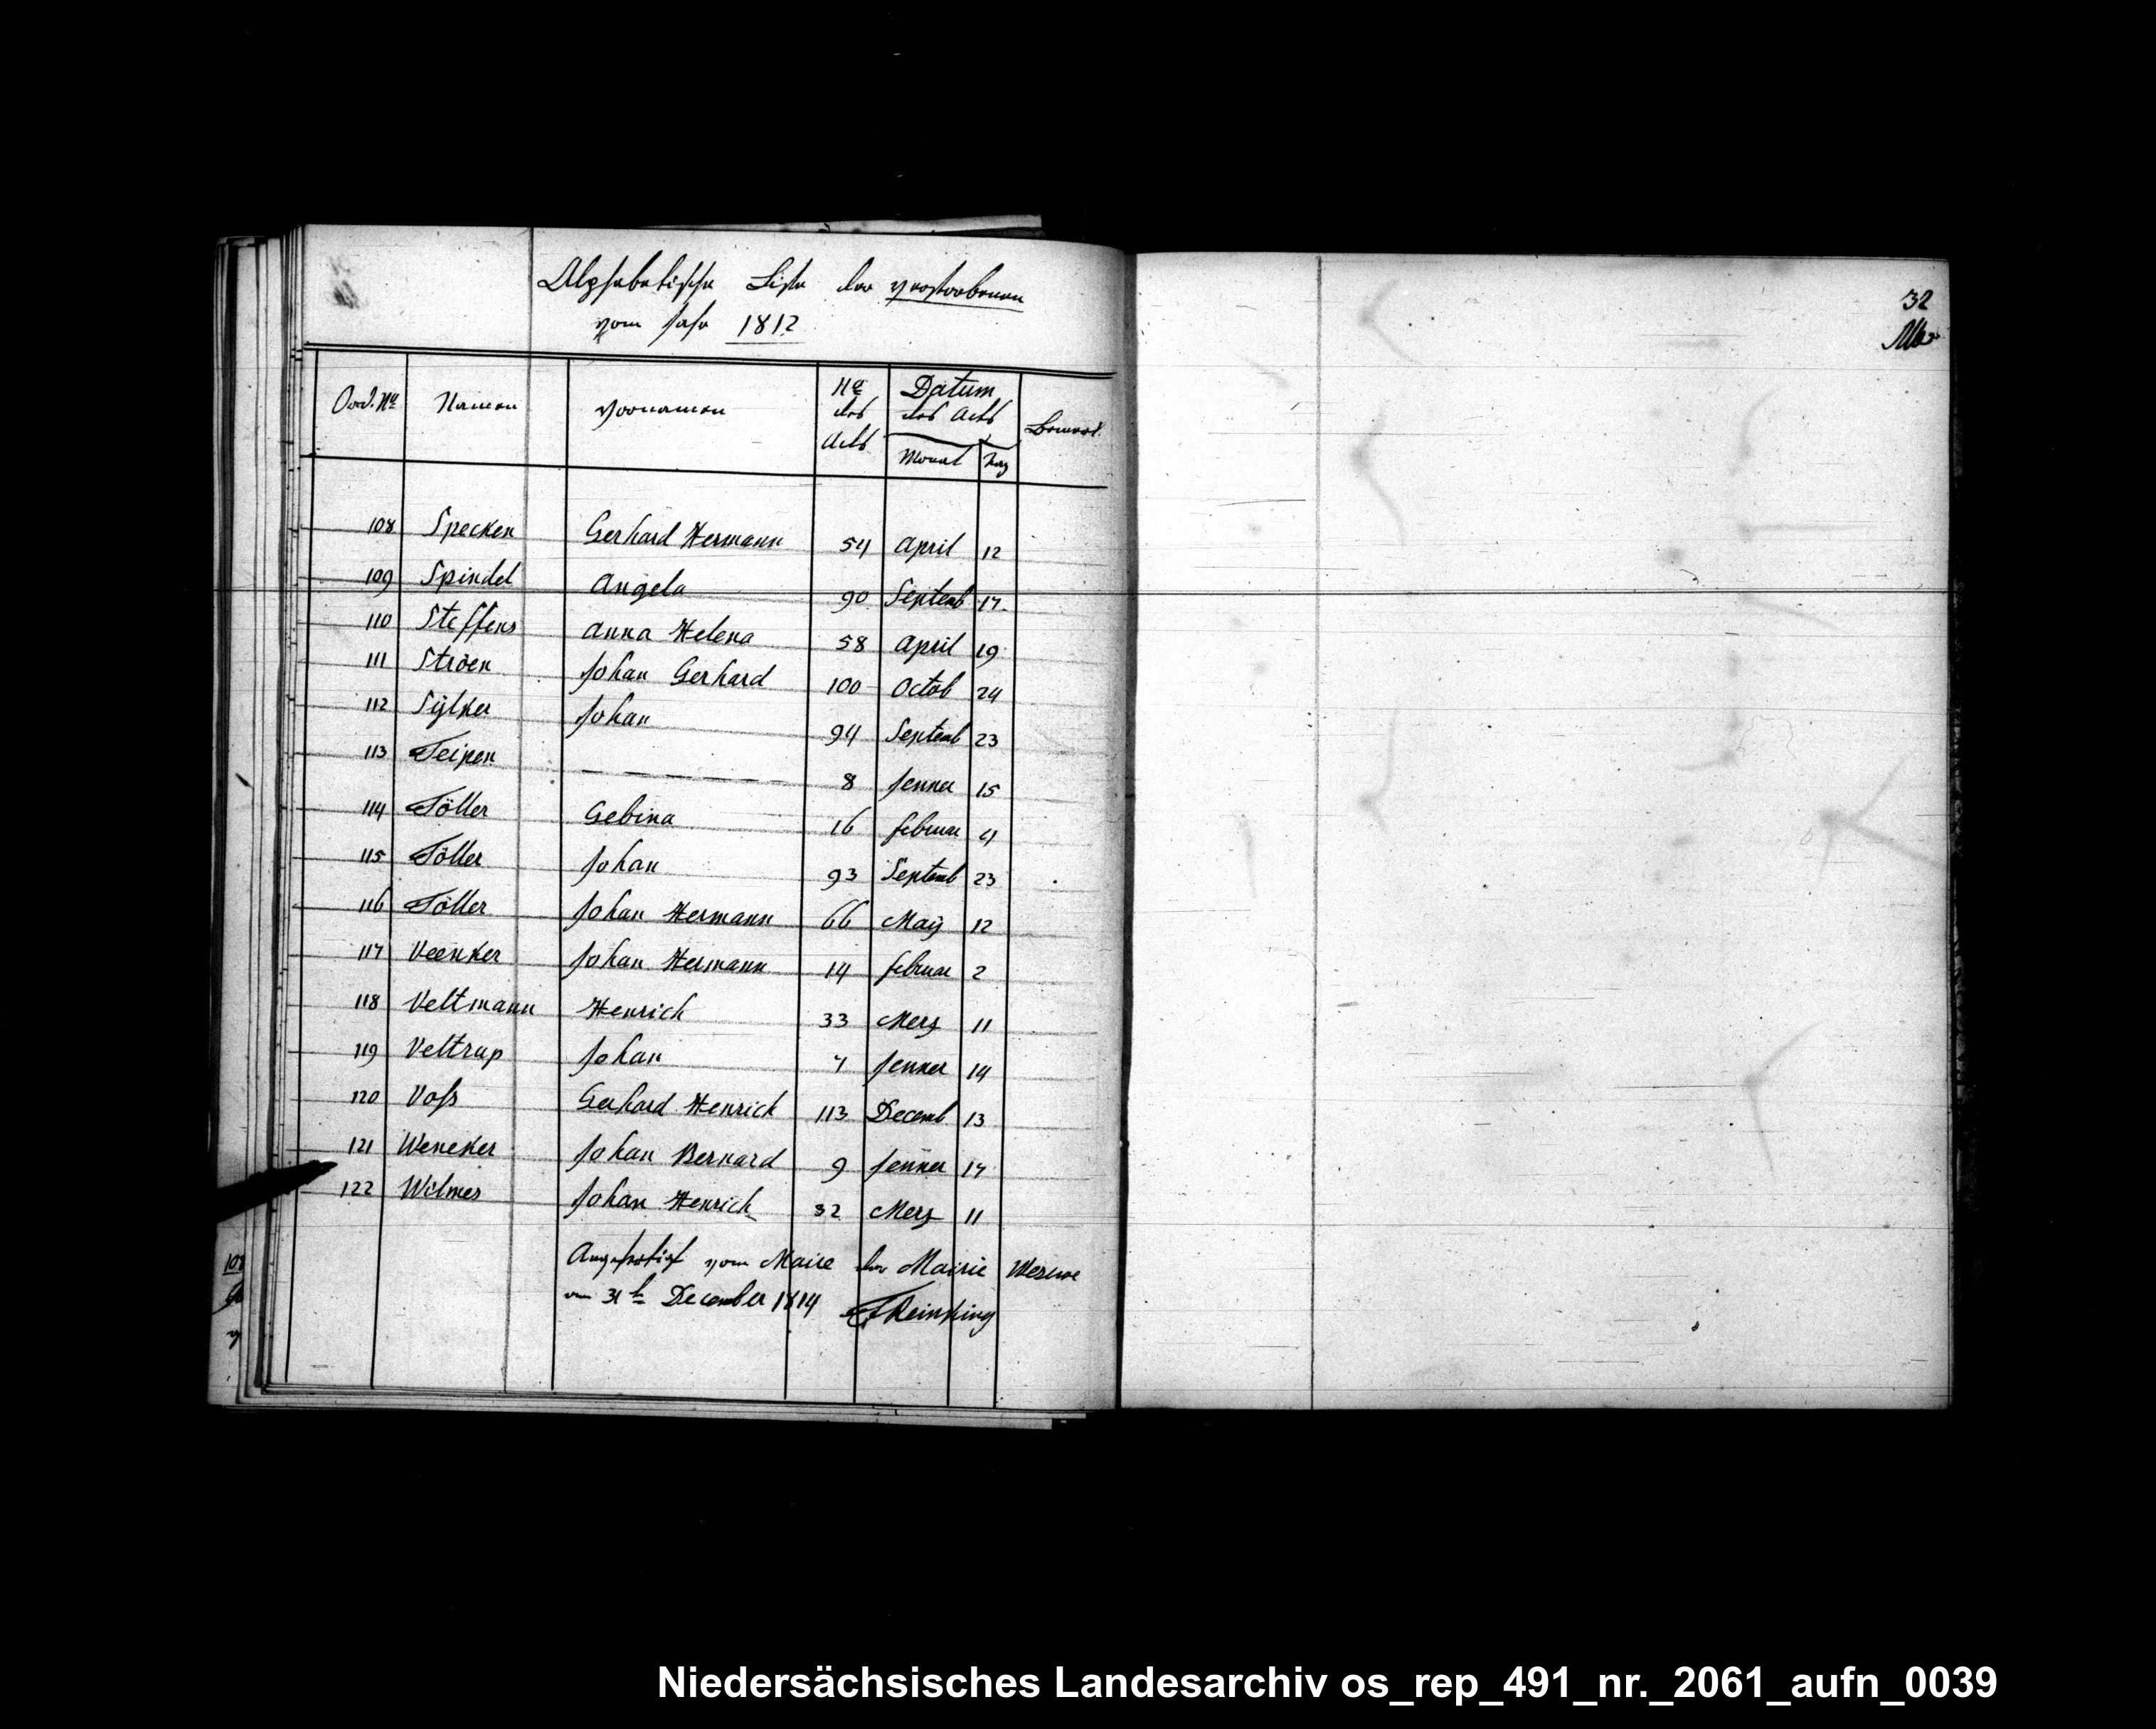 Alphabetische Liste der Verstorbenen
vom Jahr 1812
Ord. No Namen Vornamen No des Acts Datum des Acts Monat Tag Bemerk.
108 Specken Gerhard Hermann 54 April 12
109 Spindel Angela 90 Septemb 17
110 Steffens Anna Helena 58 April 19
111 Ströen Johan Gerhard 100 Octob 24
112 Sÿlker Johan 94 Septemb 23
113 Teipen — — — — — 8 Jenner 15
114 Töller Gebina 16 Februar 4
115 Töller Johan 93 Septemb 23
116 Töller Johan Hermann 66 Maÿ 12
117 Veenker Johan Hermann 14 Februar 2
118 Veltmann Henrich 33 Merz 11
119 Veltrup Johan 7 Jenner 14
120 Voß Gerhard Henrich 113 Decemb 13
121 Weneker Johan Bernard 9 Jenner 17
122 Wilmes Johan Henrich 32 Merz 11
Angefertigt vom Maire der Mairie Wesuwe
am 31t December 1814 Reinking
32
Niedersächsisches Landesarchiv os_rep_491_nr._2061_aufn_0039